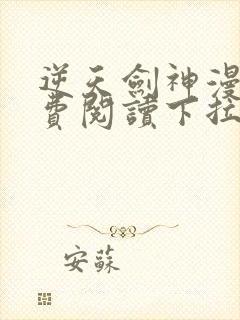 逆天劍神漫
費閱讀下拉
安蘇